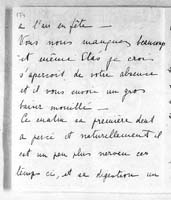 174
a l'air en fête —
Vous nous manquez beaucoup
et même je crois
s'aperçoit de votre absence
et il vous envoie un gros
baiser mouillé —
Ce matin sa première dent
a percé et naturellement il
est un peu plus nerveux ces
temps ci, et sa digestion un